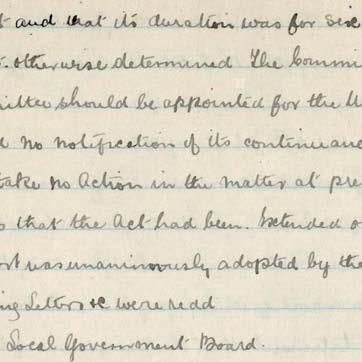 t and that its duration was for six
. otherwise determined The Comm
mittee should be appointed for the U
d no notification of its continuanc
take no Action in the matter at pre
s that the Act had been. Extended o
ort was unanimously adopted by the
ing Letters &c were read
Local Government Board.